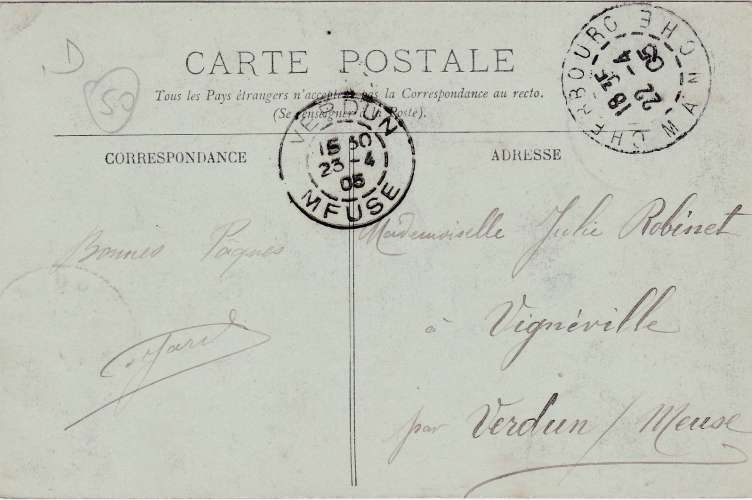 D
50
CARTE POSTALE
Tous les Pays étrangers n'acceptent pas la Correspondance au recto.
(Se renseigner à la Poste).
CHERBOURG
18 35
22 -4
05
MANCHE
VERDUN
15 30
23 -4
05
MEUSE
CORRESPONDANCE
ADRESSE
Bonnes Paques
Mademoiselle Julie Robinet
à Vignéville
par Verdun / Meuse